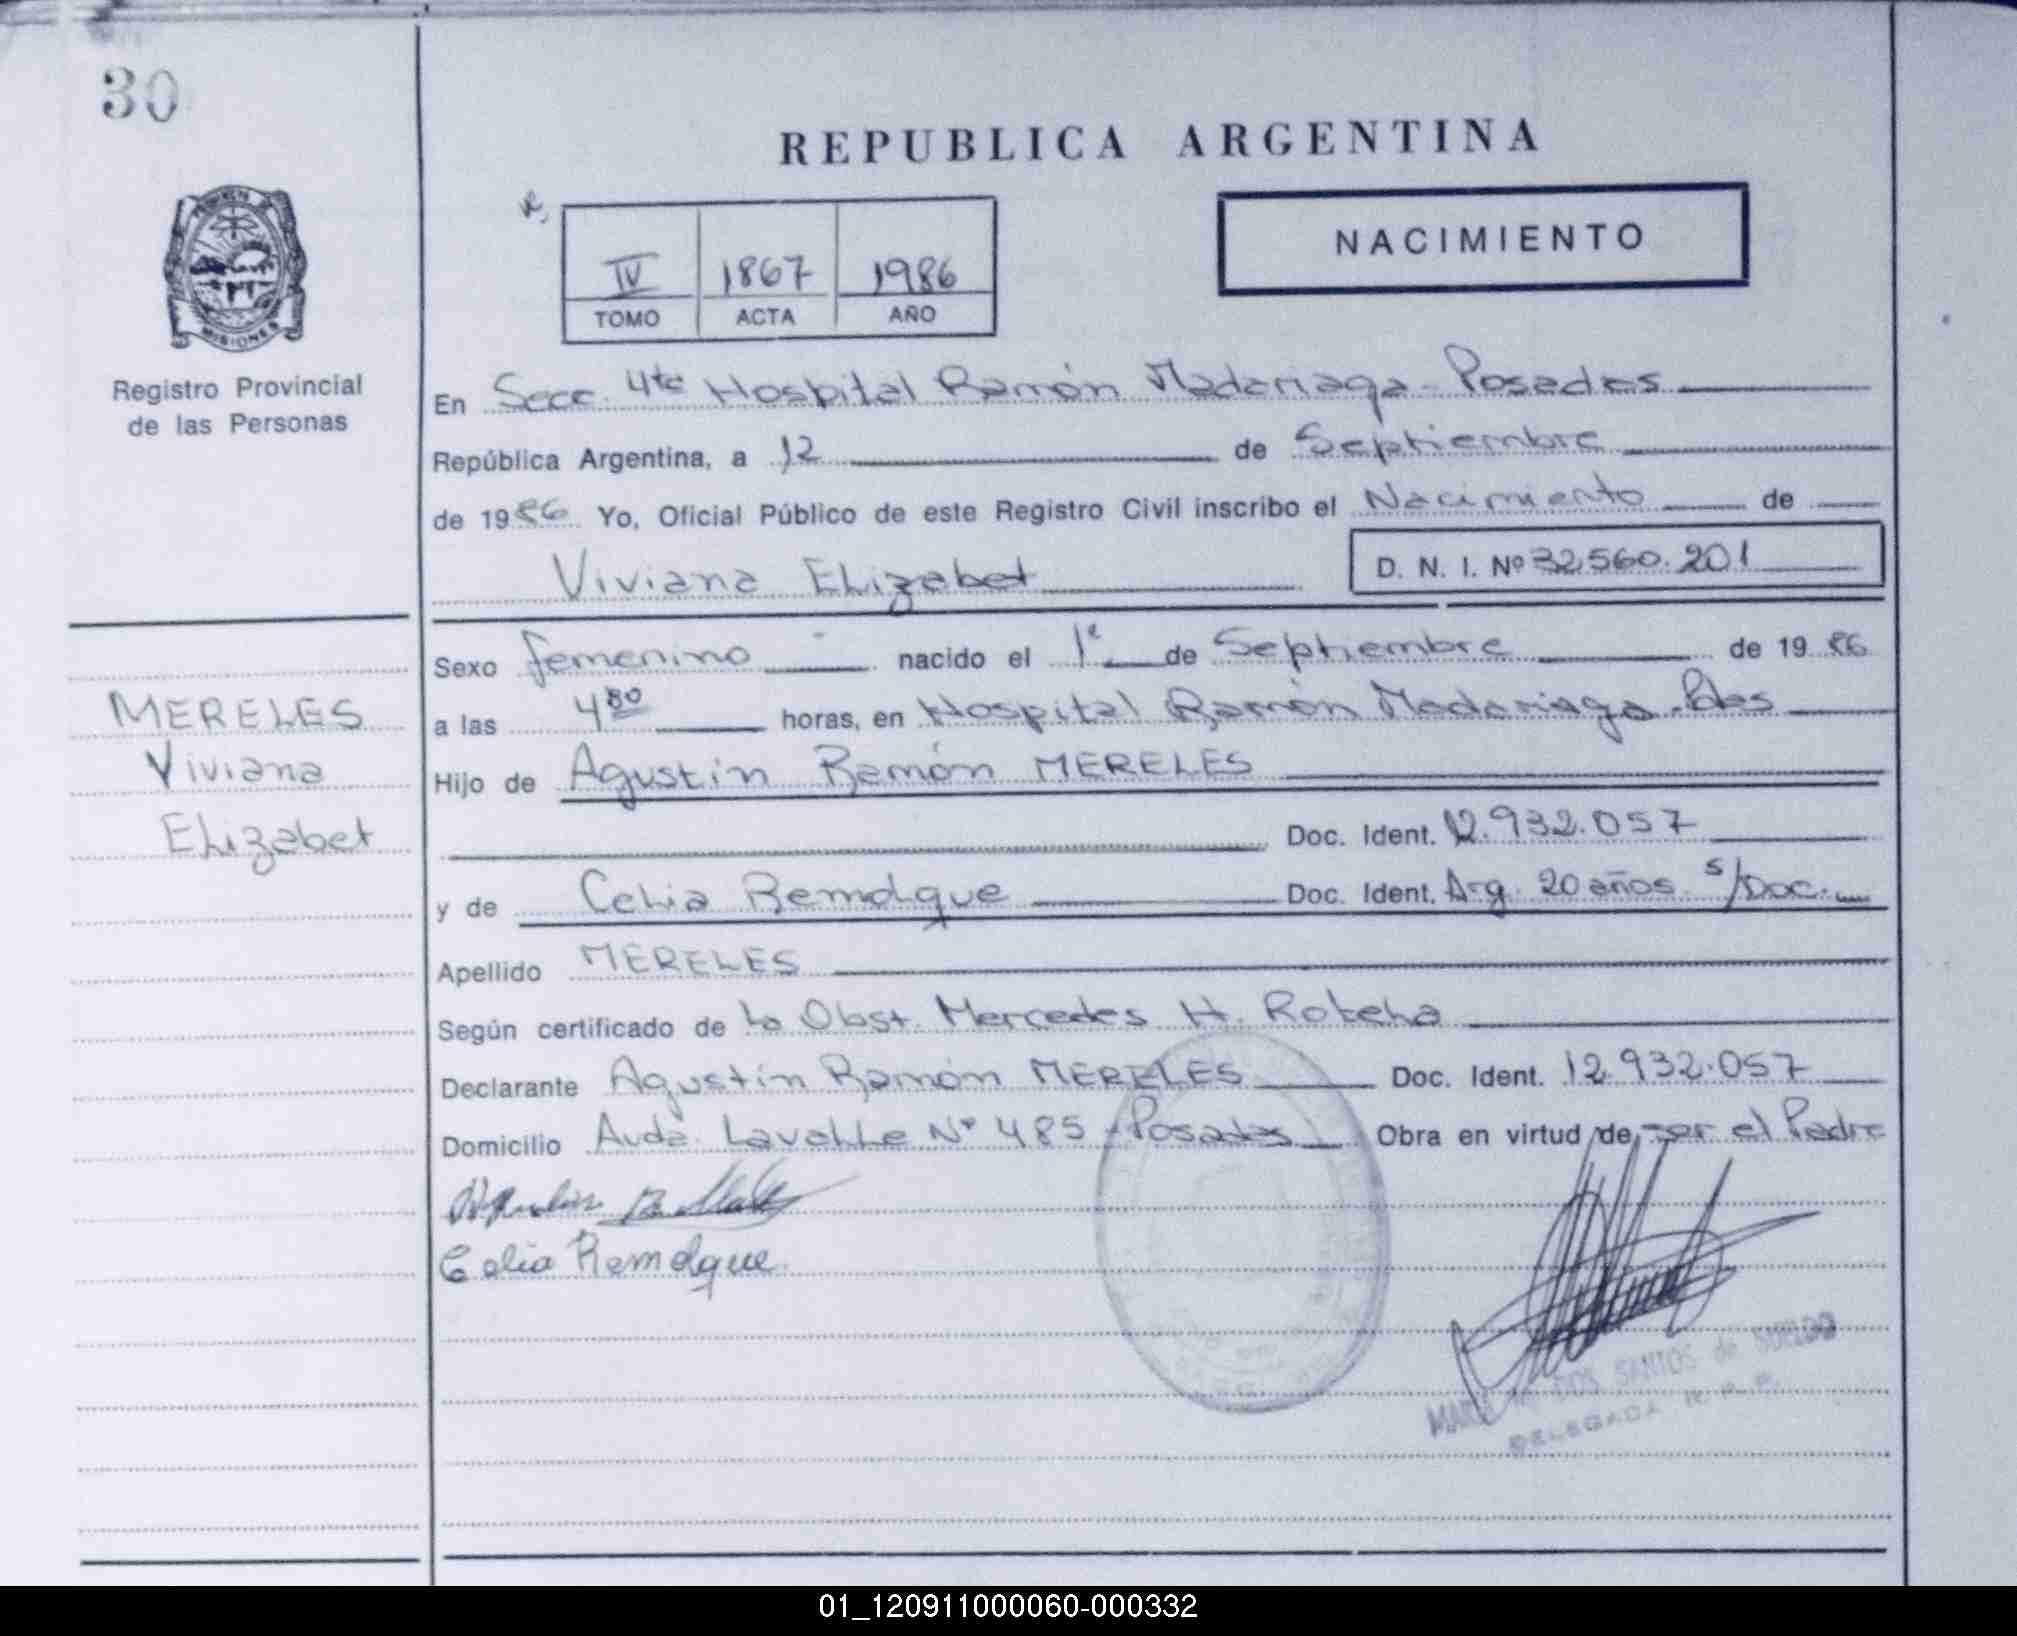 30
REPUBLICA ARGENTINA
IV 1867 1986
TOMO ACTA AÑO
NACIMIENTO
MISIONES
Registro Provincial
de las Personas
En Secc. 4ta Hospital Ramón Madariaga - Posadas
República Argentina, a 12 de Septiembre
de 1986 Yo, Oficial Público de este Registro Civil inscribo el Nacimiento de
Viviana Elizabet
D. N. I. Nº 32.560.201
Sexo femenino nacido el 1º de Septiembre de 1986
a las horas, en Hospital Ramón Madariaga - Pdas
Hijo de Agustín Ramón MERELES
Doc. Ident. 12.932.057
y de Celia Remolque Doc. Ident. Arg. 20 años s/Doc.
Apellido MERELES
Según certificado de la Obst. Mercedes H.
Declarante Agustín Ramón MERELES Doc. Ident. 12.932.057
Domicilio Avda. Lavalle Nº 485 - Posadas Obra en virtud de ser el Padre
MERELES
Viviana
Elizabet
Celia Remolque
DOS SANTOS de SUELDO
DELEGADA R. P. P.
01_120911000060-000332